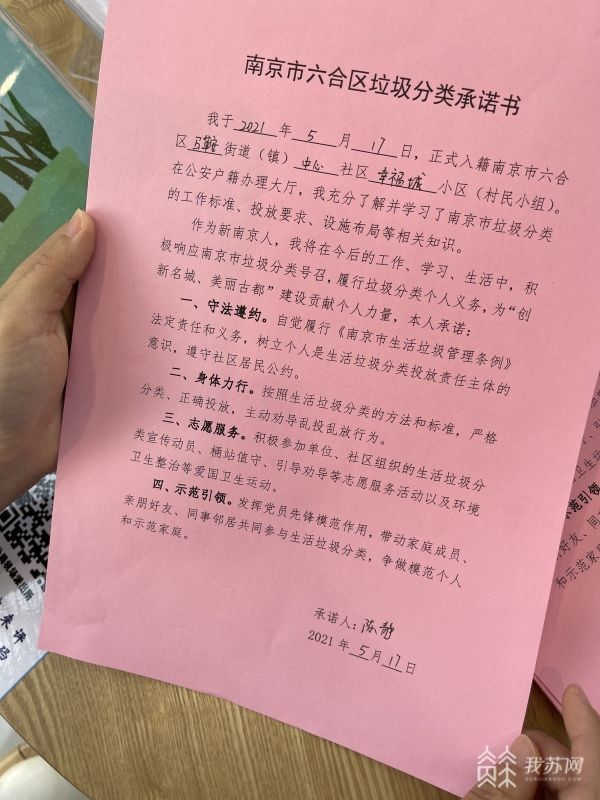 南京市六合区垃圾分类承诺书
我于 2021 年 5 月 17 日，正式入籍南京市六合
区 马鞍 街道（镇） 中心 社区 幸福城 小区（村民小组）。
在公安户籍办理大厅，我充分了解并学习了南京市垃圾分类
的工作标准、投放要求、设施布局等相关知识。
作为新南京人，我将在今后的工作、学习、生活中，积
极响应南京市垃圾分类号召，履行垃圾分类个人义务，为“创
新名城、美丽古都”建设贡献个人力量，本人承诺：
一、守法遵约。自觉履行《南京市生活垃圾管理条例》
法定责任和义务，树立个人是生活垃圾分类投放责任主体的
意识，遵守社区居民公约。
二、身体力行。按照生活垃圾分类的方法和标准，严格
分类、正确投放，主动劝导乱投乱放行为。
三、志愿服务。积极参加单位、社区组织的生活垃圾分
类宣传动员、桶站值守、引导劝导等志愿服务活动以及环境
卫生整治等爱国卫生运动。
四、示范引领。发挥党员先锋模范作用，带动家庭成员、
亲朋好友、同事邻居共同参与生活垃圾分类，争做模范个人
和示范家庭。
承诺人：陈静
2021 年 5 月 17 日
我苏网